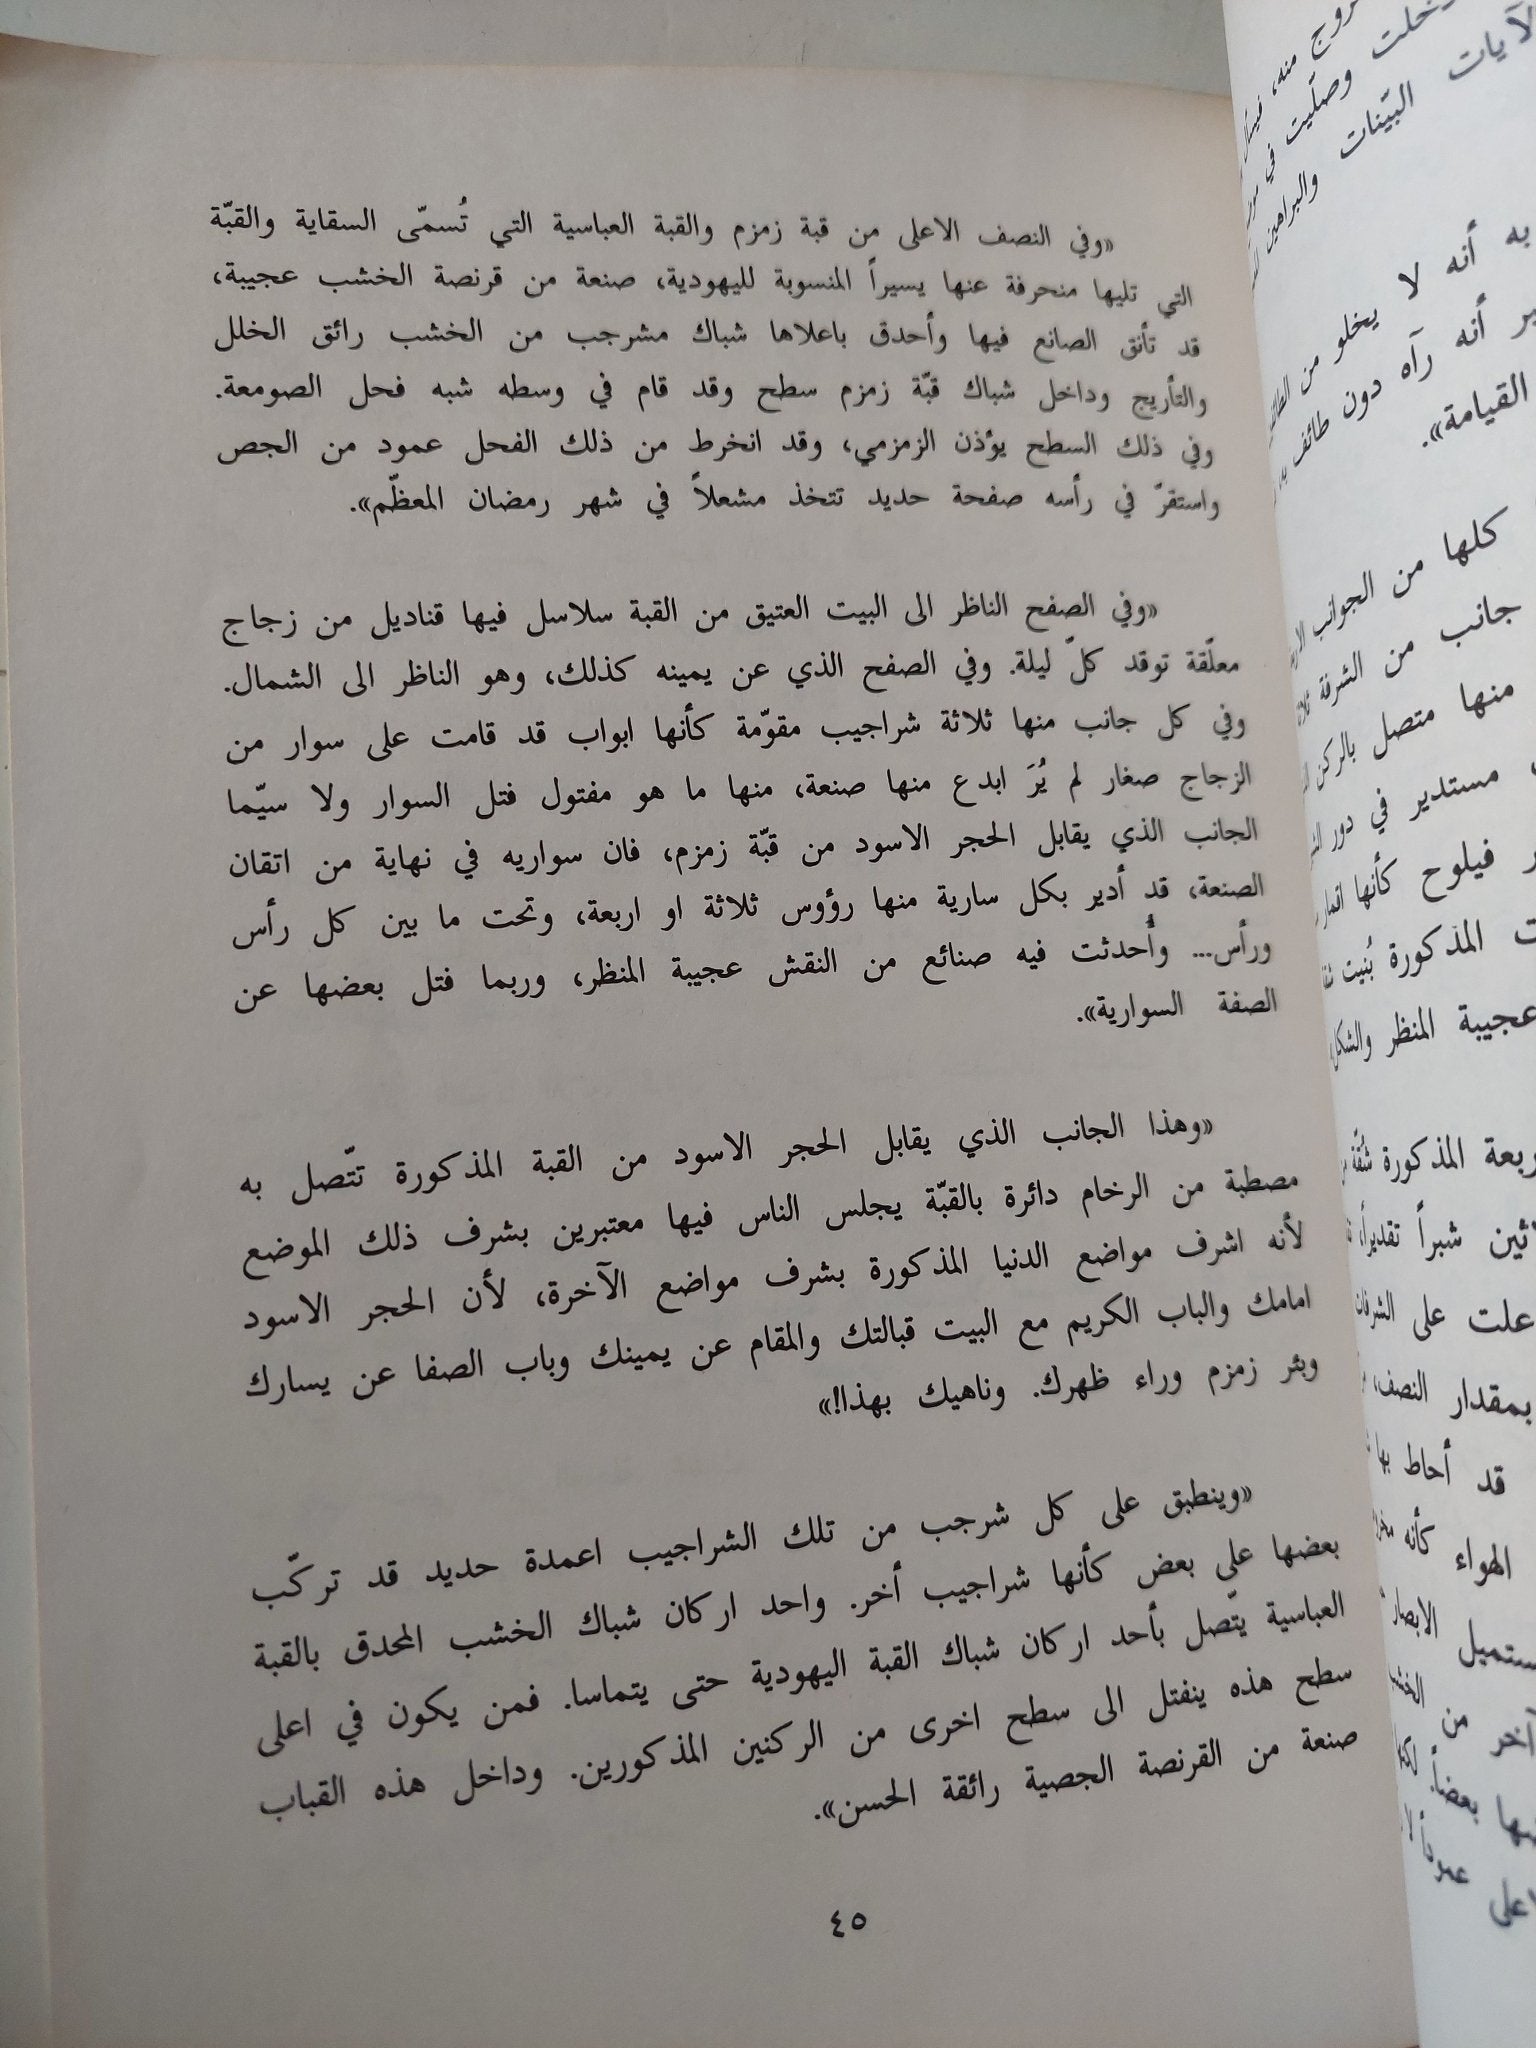 «وفي النصف الاعلى من قبة زمزم والقبة العباسية التي تُسمّى السقاية والقبّة
التي تليها منحرفة عنها يسيراً المنسوبة لليهودية، صنعة من قرنصة الخشب عجيبة،
قد تأنق الصانع فيها وأحدق باعلاها شباك مشرجب من الخشب رائق الخلل
والتأريج وداخل شباك قبّة زمزم سطح وقد قام في وسطه شبه فحل الصومعة.
وفي ذلك السطح يؤذن الزمزمي، وقد انخرط من ذلك الفحل عمود من الجص
واستقرّ في رأسه صفحة حديد تتخذ مشعلاً في شهر رمضان المعظّم».
«وفي الصفح الناظر الى البيت العتيق من القبة سلاسل فيها قناديل من زجاج
معلّقة توقد كلّ ليلة. وفي الصفح الذي عن يمينه كذلك، وهو الناظر الى الشمال.
وفي كل جانب منها ثلاثة شراجيب مقوّمة كأنها ابواب قد قامت على سوار من
الزجاج صغار لم يُرَ ابدع منها صنعة، منها ما هو مفتول فتل السوار ولا سيّما
الجانب الذي يقابل الحجر الاسود من قبّة زمزم، فان سواريه في نهاية من اتقان
الصنعة، قد أدير بكل سارية منها رؤوس ثلاثة او اربعة، وتحت ما بين كل رأس
ورأس... وأُحدثت فيه صنائع من النقش عجيبة المنظر، وربما فتل بعضها عن
الصفة السوارية».
«وهذا الجانب الذي يقابل الحجر الاسود من القبة المذكورة تتّصل به
مصطبة من الرخام دائرة بالقبّة يجلس الناس فيها معتبرين بشرف ذلك الموضع
لأنه اشرف مواضع الدنيا المذكورة بشرف مواضع الآخرة، لأن الحجر الاسود
امامك والباب الكريم مع البيت قبالتك والمقام عن يمينك وباب الصفا عن يسارك
وبئر زمزم وراء ظهرك. وناهيك بهذا!»
«وينطبق على كل شرجب من تلك الشراجيب اعمدة حديد قد تركّب
بعضها على بعض كأنها شراجيب أخر. واحد اركان شباك الخشب المحدق بالقبة
العباسية يتّصل بأحد اركان شباك القبة اليهودية حتى يتماسا. فمن يكون في اعلى
سطح هذه ينفتل الى سطح اخرى من الركنين المذكورين. وداخل هذه القباب
صنعة من القرنصة الجصية رائقة الحسن».
٤٥
منه،
وصلّيت في
البيّنات والبراهين
به أنه لا يخلو من
أنه رآه دون طائف به
القيامة».
كلها من الجوانب
جانب من الشرفة
منها متصل بالركن
مستدير في دور
فيلوح كأنها
المذكورة بُنيت
عجيبة المنظر والشكل
المذكورة شقّة
شبراً تقديراً،
علت على
بمقدار النصف،
قد أحاط بها
الهواء كأنه
الابصار
آخر من الخشب
بعضاً.